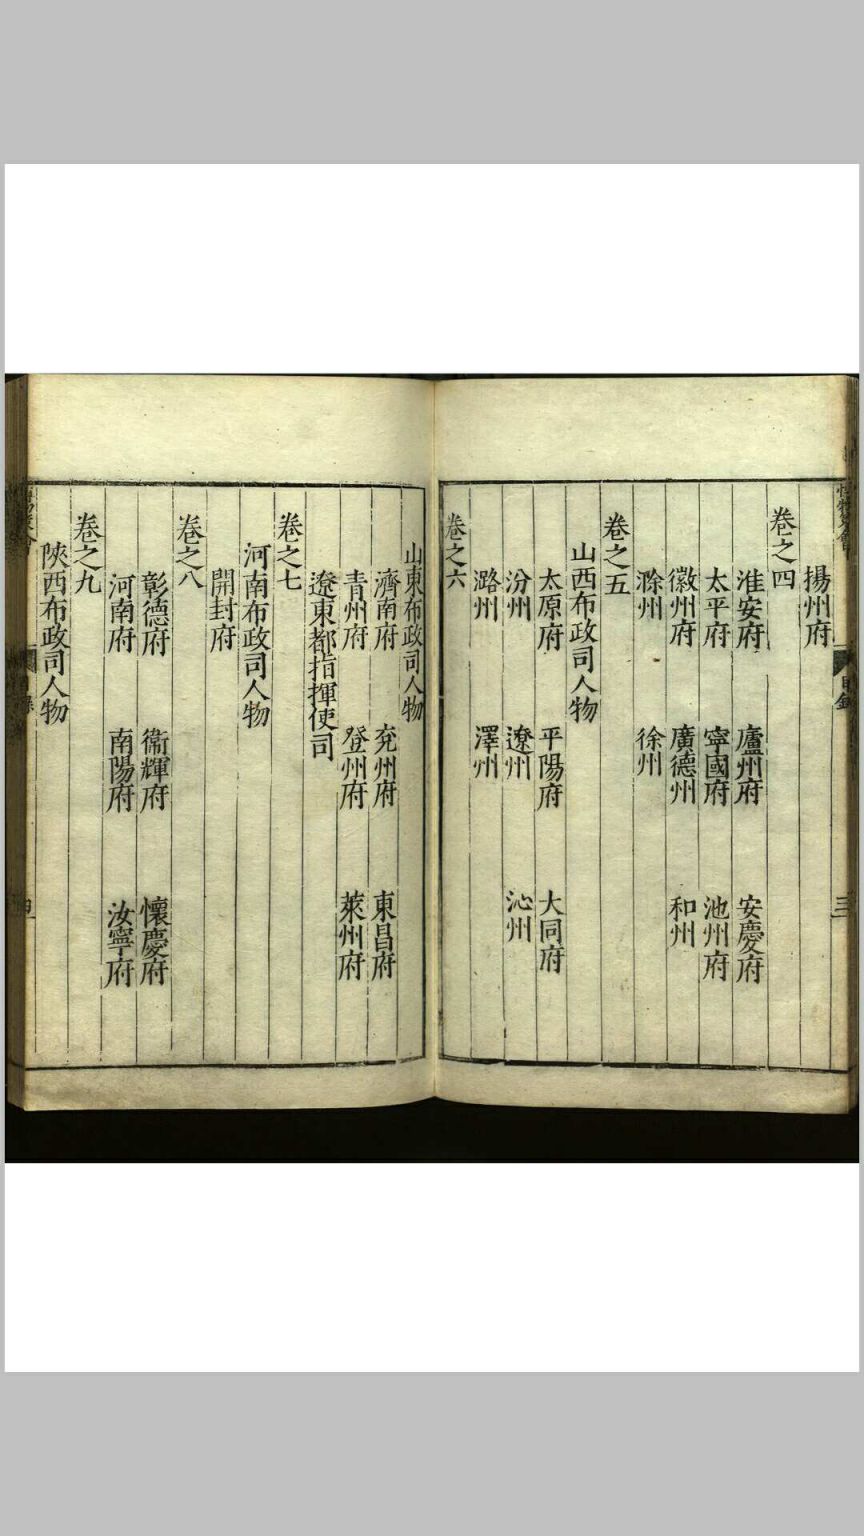 揚州府
卷之四
淮安府 廬州府 安慶府
太平府 寧國府 池州府
徽州府 廣德州 和州
滁州 徐州
卷之五
山西布政司人物
太原府 平陽府 大同府
汾州 遼州 沁州
潞州 澤州
卷之六
山東布政司人物
濟南府 兖州府 東昌府
青州府 登州府 萊州府
遼東都指揮使司
卷之七
河南布政司人物
開封府
卷之八
彰德府 衞輝府 懷慶府
河南府 南陽府 汝寧府
卷之九
陝西布政司人物